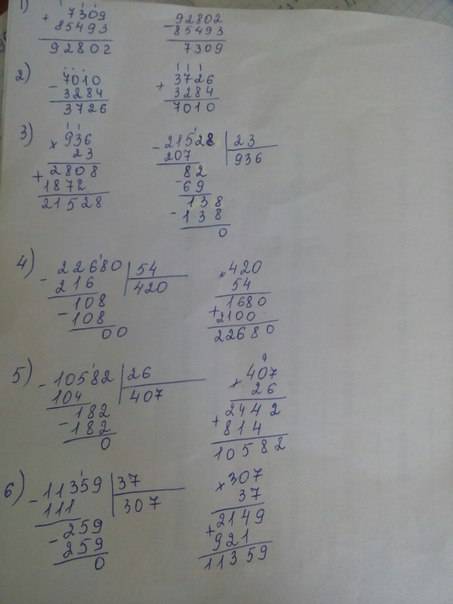 1)
+ 7309
85493
92802
- 92802
85493
7309
2)
- 7010
3284
3726
+ 3726
3284
7010
3)
× 936
23
2808
+ 1872
21528
- 21528 | 23
207 | 936
82
- 69
138
- 138
0
4)
- 22680 | 54
216 | 420
108
- 108
00
× 420
54
1680
+ 2100
22680
5)
- 10582 | 26
104 | 407
182
- 182
0
× 407
26
2442
+ 814
10582
6)
- 11359 | 37
111 | 307
259
- 259
0
× 307
37
2149
+ 921
11359